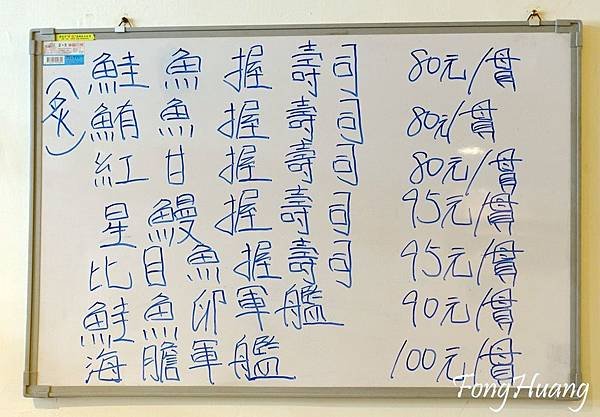 (炙)
鮭魚握壽司 80元/貫
鮪魚握壽司 80元/貫
紅甘握壽司 80元/貫
星鰻握壽司 95元/貫
比目魚握壽司 95元/貫
鮭魚卵軍艦 90元/貫
海膽軍艦 100元/貫
FongHuang